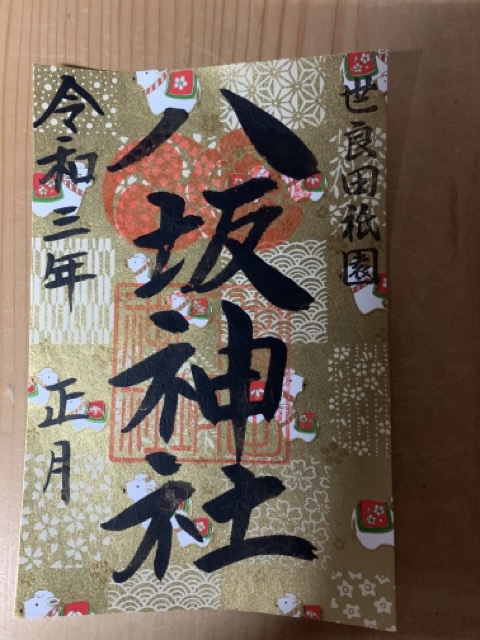 世良田祇園
八坂神社
令和三年 正月